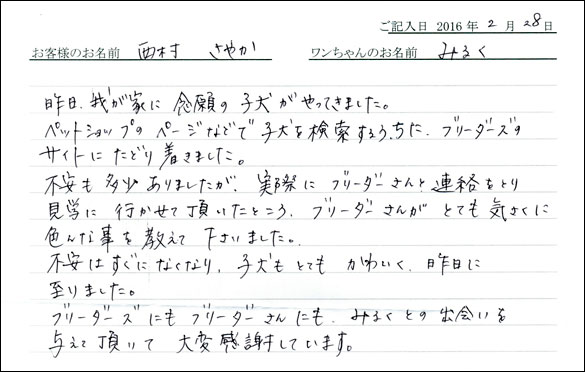 ご記入日 2016年 2月 28日
お客様のお名前 西村 さやか ワンちゃんのお名前 みるく
昨日、我が家に念願の子犬がやってきました。
ペットショップのページなどで子犬を検索するうちに、ブリーダーズの
サイトにたどり着きました。
不安も多少ありましたが、実際にブリーダーさんと連絡をとり
見学に行かせて頂いたところ、ブリーダーさんがとても気さくに
色んな事を教えて下さいました。
不安はすぐになくなり、子犬もとてもかわいく、昨日に
至りました。
ブリーダーズにもブリーダーさんにも、みるくとの出会いを
与えて頂いて大変感謝しています。